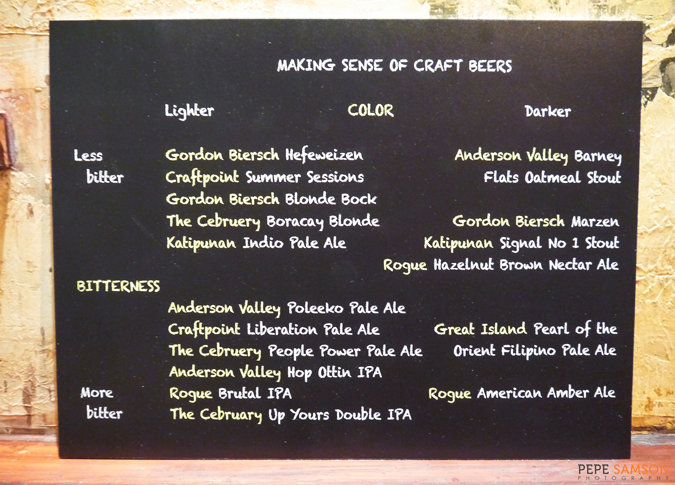 MAKING SENSE OF CRAFT BEERS
Lighter COLOR Darker
Less
bitter
Gordon Biersch Hefeweizen
Craftpoint Summer Sessions
Gordon Biersch Blonde Bock
The Cebruery Boracay Blonde
Katipunan Indio Pale Ale
Anderson Valley Barney
Flats Oatmeal Stout
Gordon Biersch Marzen
Katipunan Signal No 1 Stout
Rogue Hazelnut Brown Nectar Ale
BITTERNESS
Anderson Valley Poleeko Pale Ale
Craftpoint Liberation Pale Ale
The Cebruery People Power Pale Ale
Anderson Valley Hop Ottin IPA
Rogue Brutal IPA
The Cebruary Up Yours Double IPA
Great Island Pearl of the
Orient Filipino Pale Ale
Rogue American Amber Ale
More
bitter
PEPE SAMSON
PHOTOGRAPHY